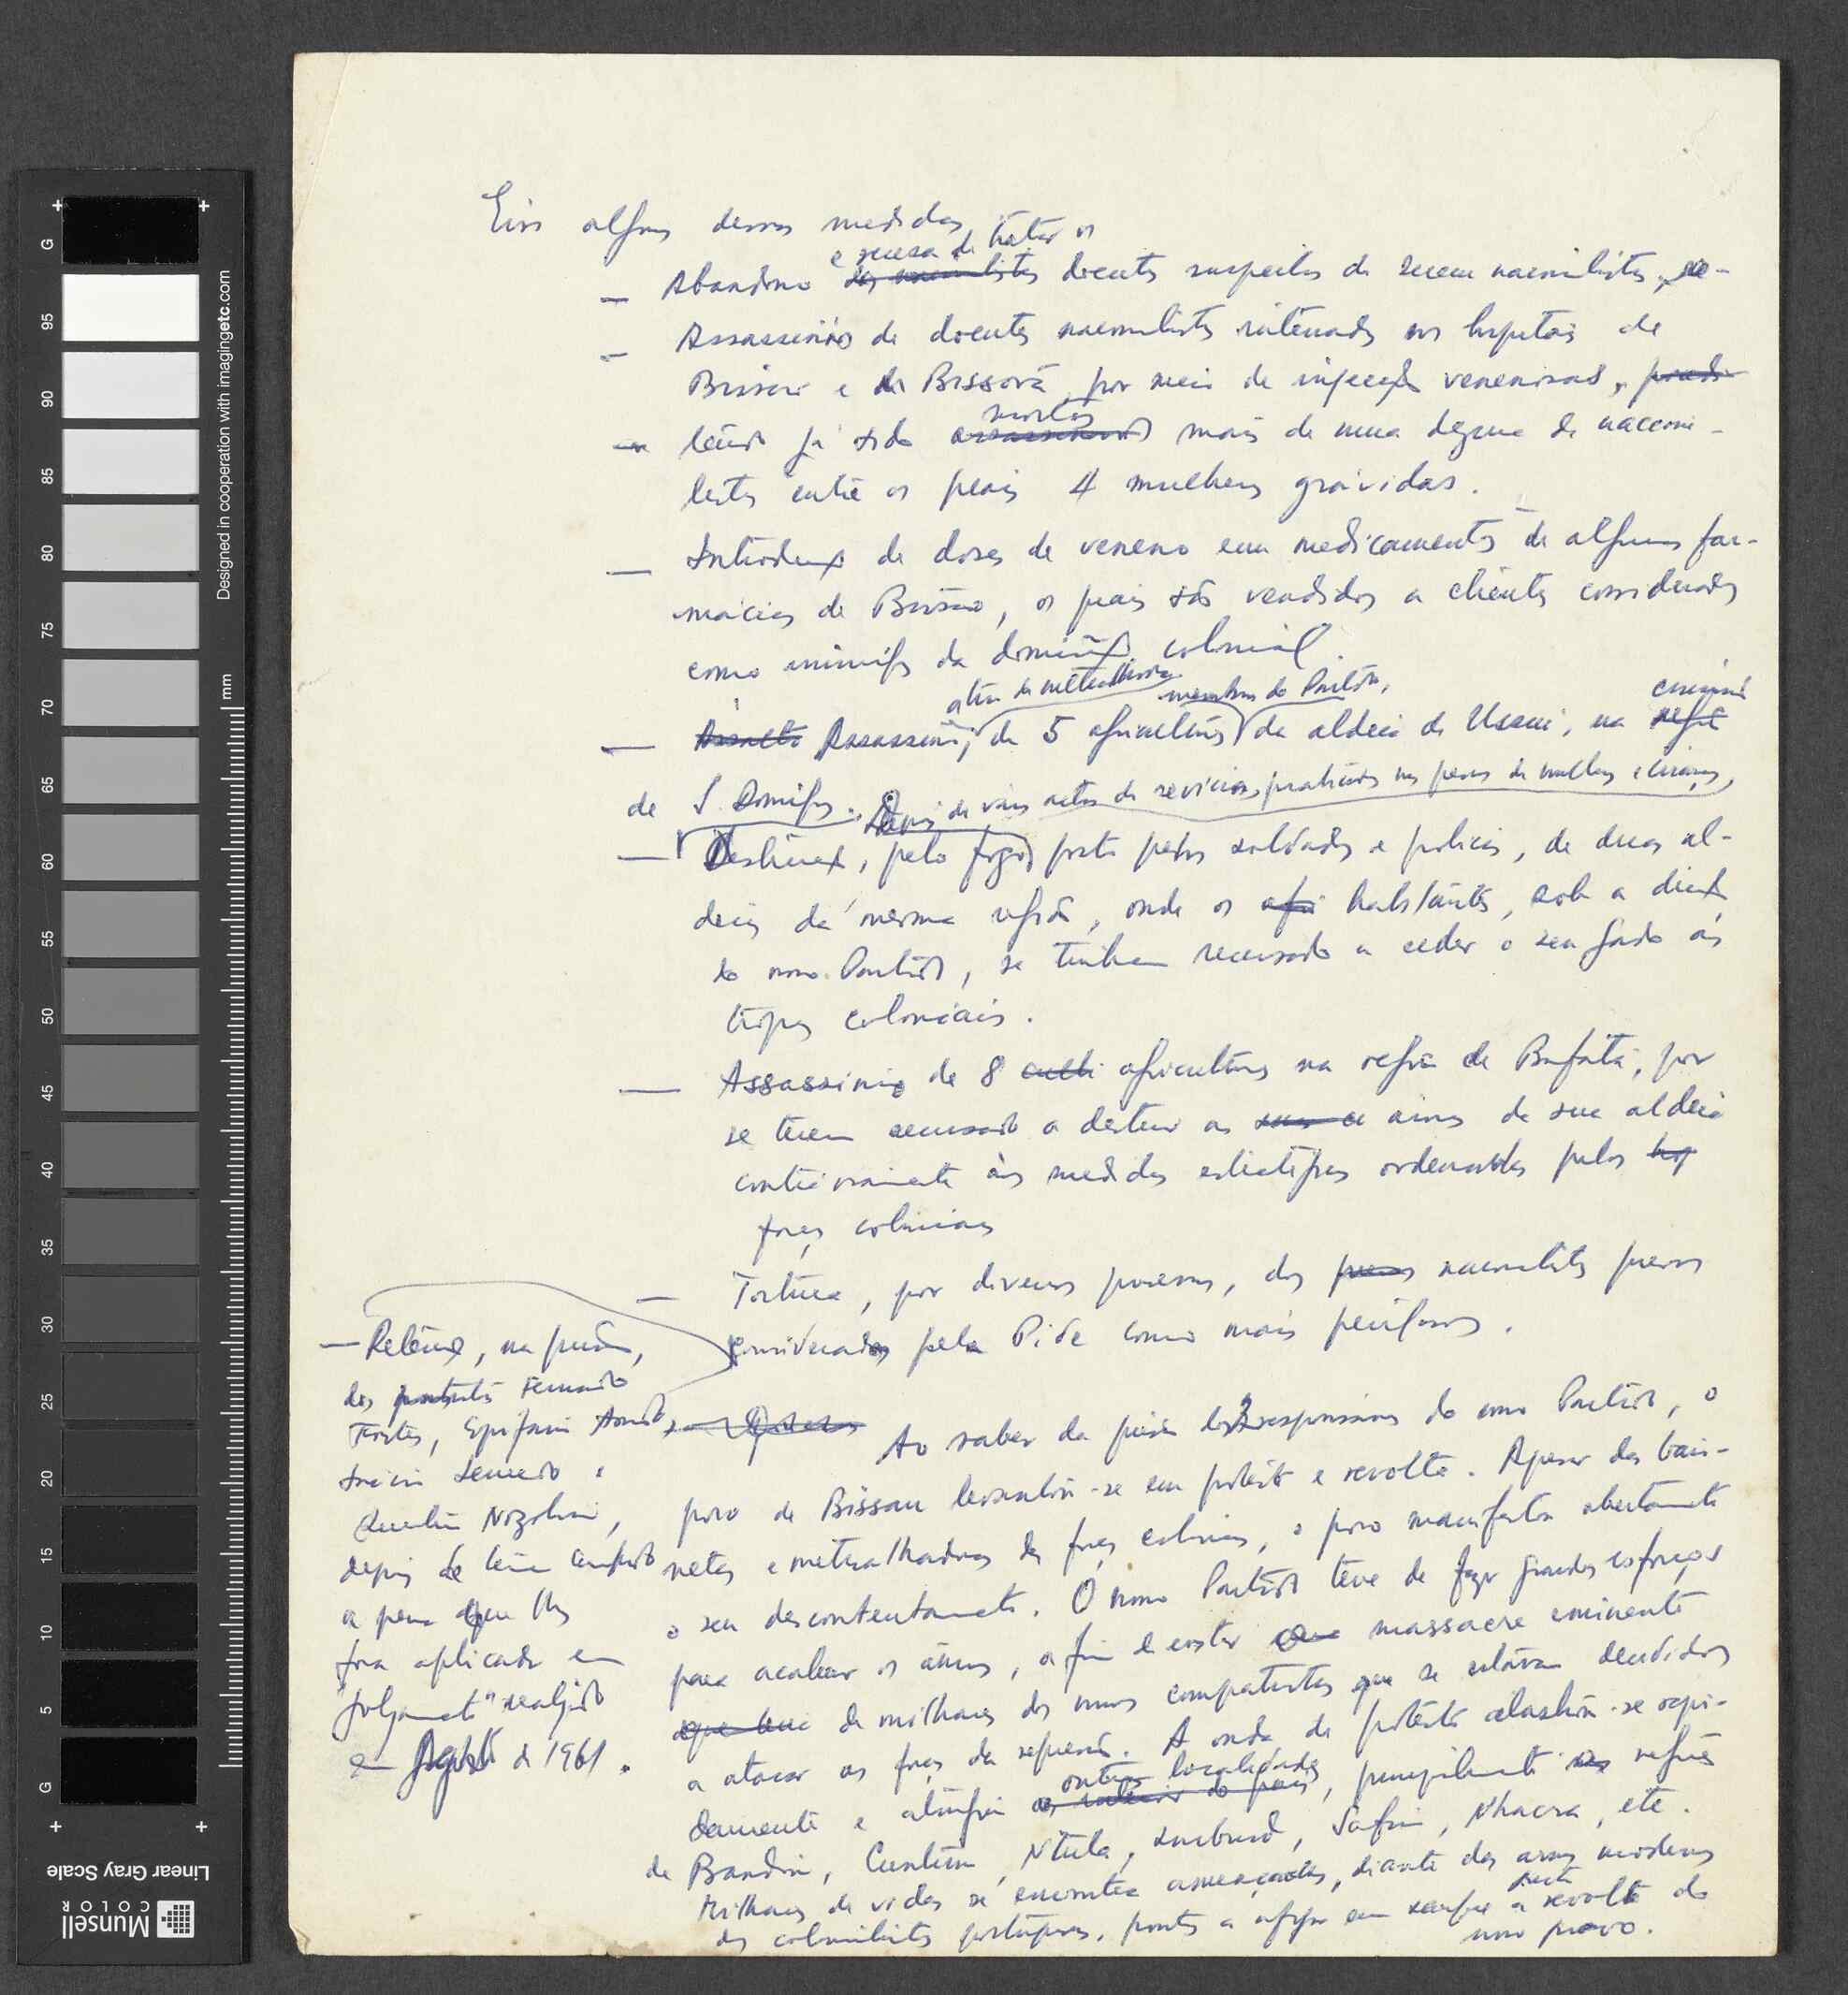 Eis algumas dessas medidas,
e recusa de tratar os
— Abandono dos nacionalistas doentes suspeitos de serem nacionalistas,
— Assassínio de doentes nacionalistas internados nos hospitais de
Bissau e de Bissorã, por meio de injecção venenosas,
mortos
tendo já sido assassinados mais de uma dezena de naciona-
listas entre os quais 4 mulheres grávidas.
— Introdução de doses de veneno em medicamentos de algumas far-
mácias de Bissau, os quais são vendidos a clientes considerados
como inimigos da dominação colonial.
a tiro de metralhadora membros do Partido,
— Assalto Assassínio, de 5 agricultores da aldeia de na região
de S. Domingos. Depois de vários actos de sevícias, praticados nas pessoas de mulheres e crianças,
— Destruição, pelo fogo posto pelos soldados e polícias, de duas al-
deias da mesma região, onde os habitantes, sob a direcção
do nosso Partido, se tinham recusado a ceder o seu gado às
tropas coloniais.
— Assassínio de 8 agricultores na região de Bafatá, por
se terem recusado a destruir as da sua aldeia
contrariamente às medidas estratégicas ordenadas pelas
forças coloniais
— Tortura, por diversos processos, dos presos nacionalistas presos
considerados pela Pide como mais perigosos.
— Retenção, na prisão,
dos patriotas Fernando
Fortes, Epifânio Amado,
Inácio Semedo e
Quintino Nozolini,
depois de terem cumprido
a pena que lhes
fora aplicada em
"julgamento" realizado
em Agosto de 1961.
Ao saber da prisão dos 3 responsáveis do nosso Partido, o
povo de Bissau levantou-se em protesto e revolta. Apesar das baio-
netas e metralhadoras das forças coloniais, o povo manifestou abertamente
o seu descontentamento. O nosso Partido teve de fazer grandes esforços
para acalmar os ânimos, a fim de evitar massacre eminente
de milhares dos nossos compatriotas que se estavam decididos
a atacar as forças da repressão. A onda de protesto alastrou-se rapi-
outras localidades
damente e atingiu o interior do país, principalmente as regiões
de Bandim, Cuntum, Ntula, Safim, Nhacra, etc.
Milhares de vidas se encontra ameaçadas, diante das armas modernas
justa
dos colonialistas portugueses, prontos a afogar em sangue a revolta do
nosso povo.
Designed in cooperation with imagingetc.com
mm
G
95
90
85
80
75
70
65
60
55
50
45
40
35
30
25
20
15
10
5
G
Linear Gray Scale
Munsell
COLOR